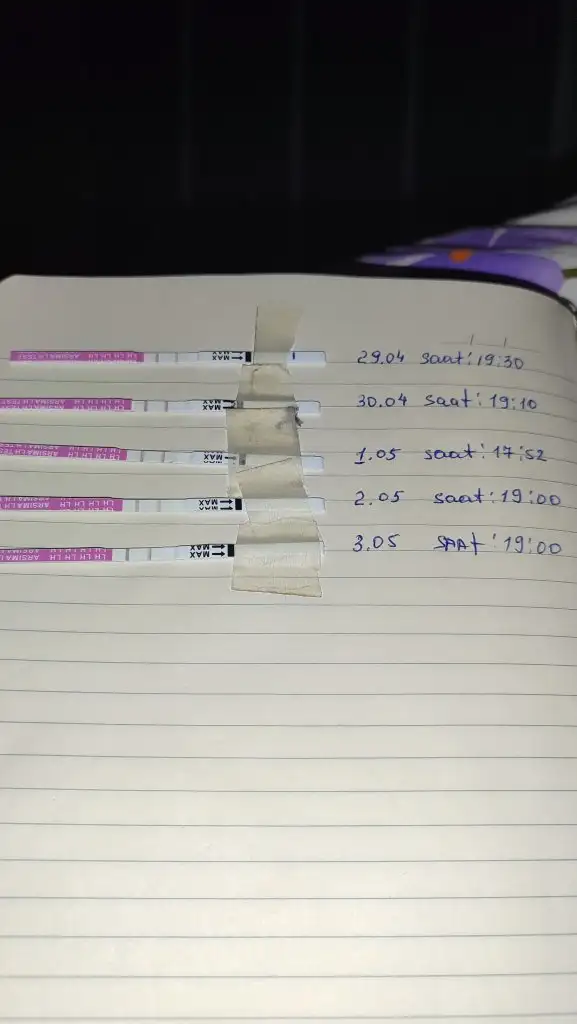 LH LH LH LH LH ARSIMA LH TEST MAX MAX 29.04 saat: 19:30
LH LH LH LH ARSIMA LH TEST MAX MAX 30.04 saat: 19:10
LH LH LH LH ARSIMA LH TES 1.05 saat: 17:52
LH LH LH LH ARSIMA LH MAX MAX 2.05 saat: 19:00
LH LH LH LH ARSIMA L MAX MAX 3.05 SAAt: 19:00